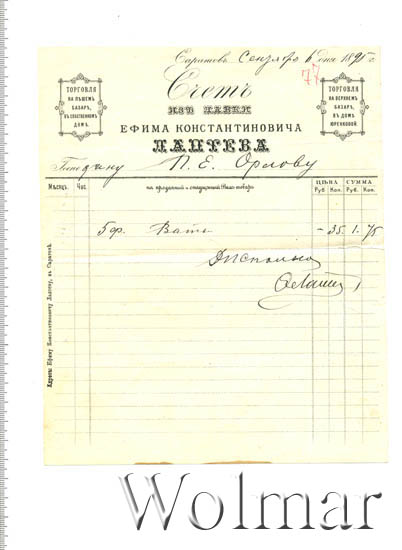 Саратовъ, Сентября 6 дня 1895 г.
77
ТОРГОВЛЯ
НА ПѢШЕМЪ
БАЗАРѢ,
ВЪ СОБСТВЕННОМЪ
ДОМѢ.
Счетъ
ИЗЪ ЛАВКИ
ЕФИМА КОНСТАНТИНОВИЧА
ЛАПТЕВА
ТОРГОВЛЯ
НА ВЕРХНЕМЪ
БАЗАРѢ,
ВЪ ДОМѢ
Господину П. Е. Орлову
Мѣсяцъ. Час. на проданный и отпущенный товаръ ЦѢНА СУММА
Руб. Коп. Руб. Коп.
5 ф. Ваты — 35 1. 75
Адресъ: Ефиму Константиновичу Лаптеву, въ Саратовѣ.
Wolmar